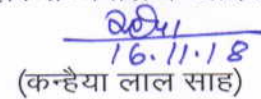 16.11.18
(कन्हैया लाल साह)